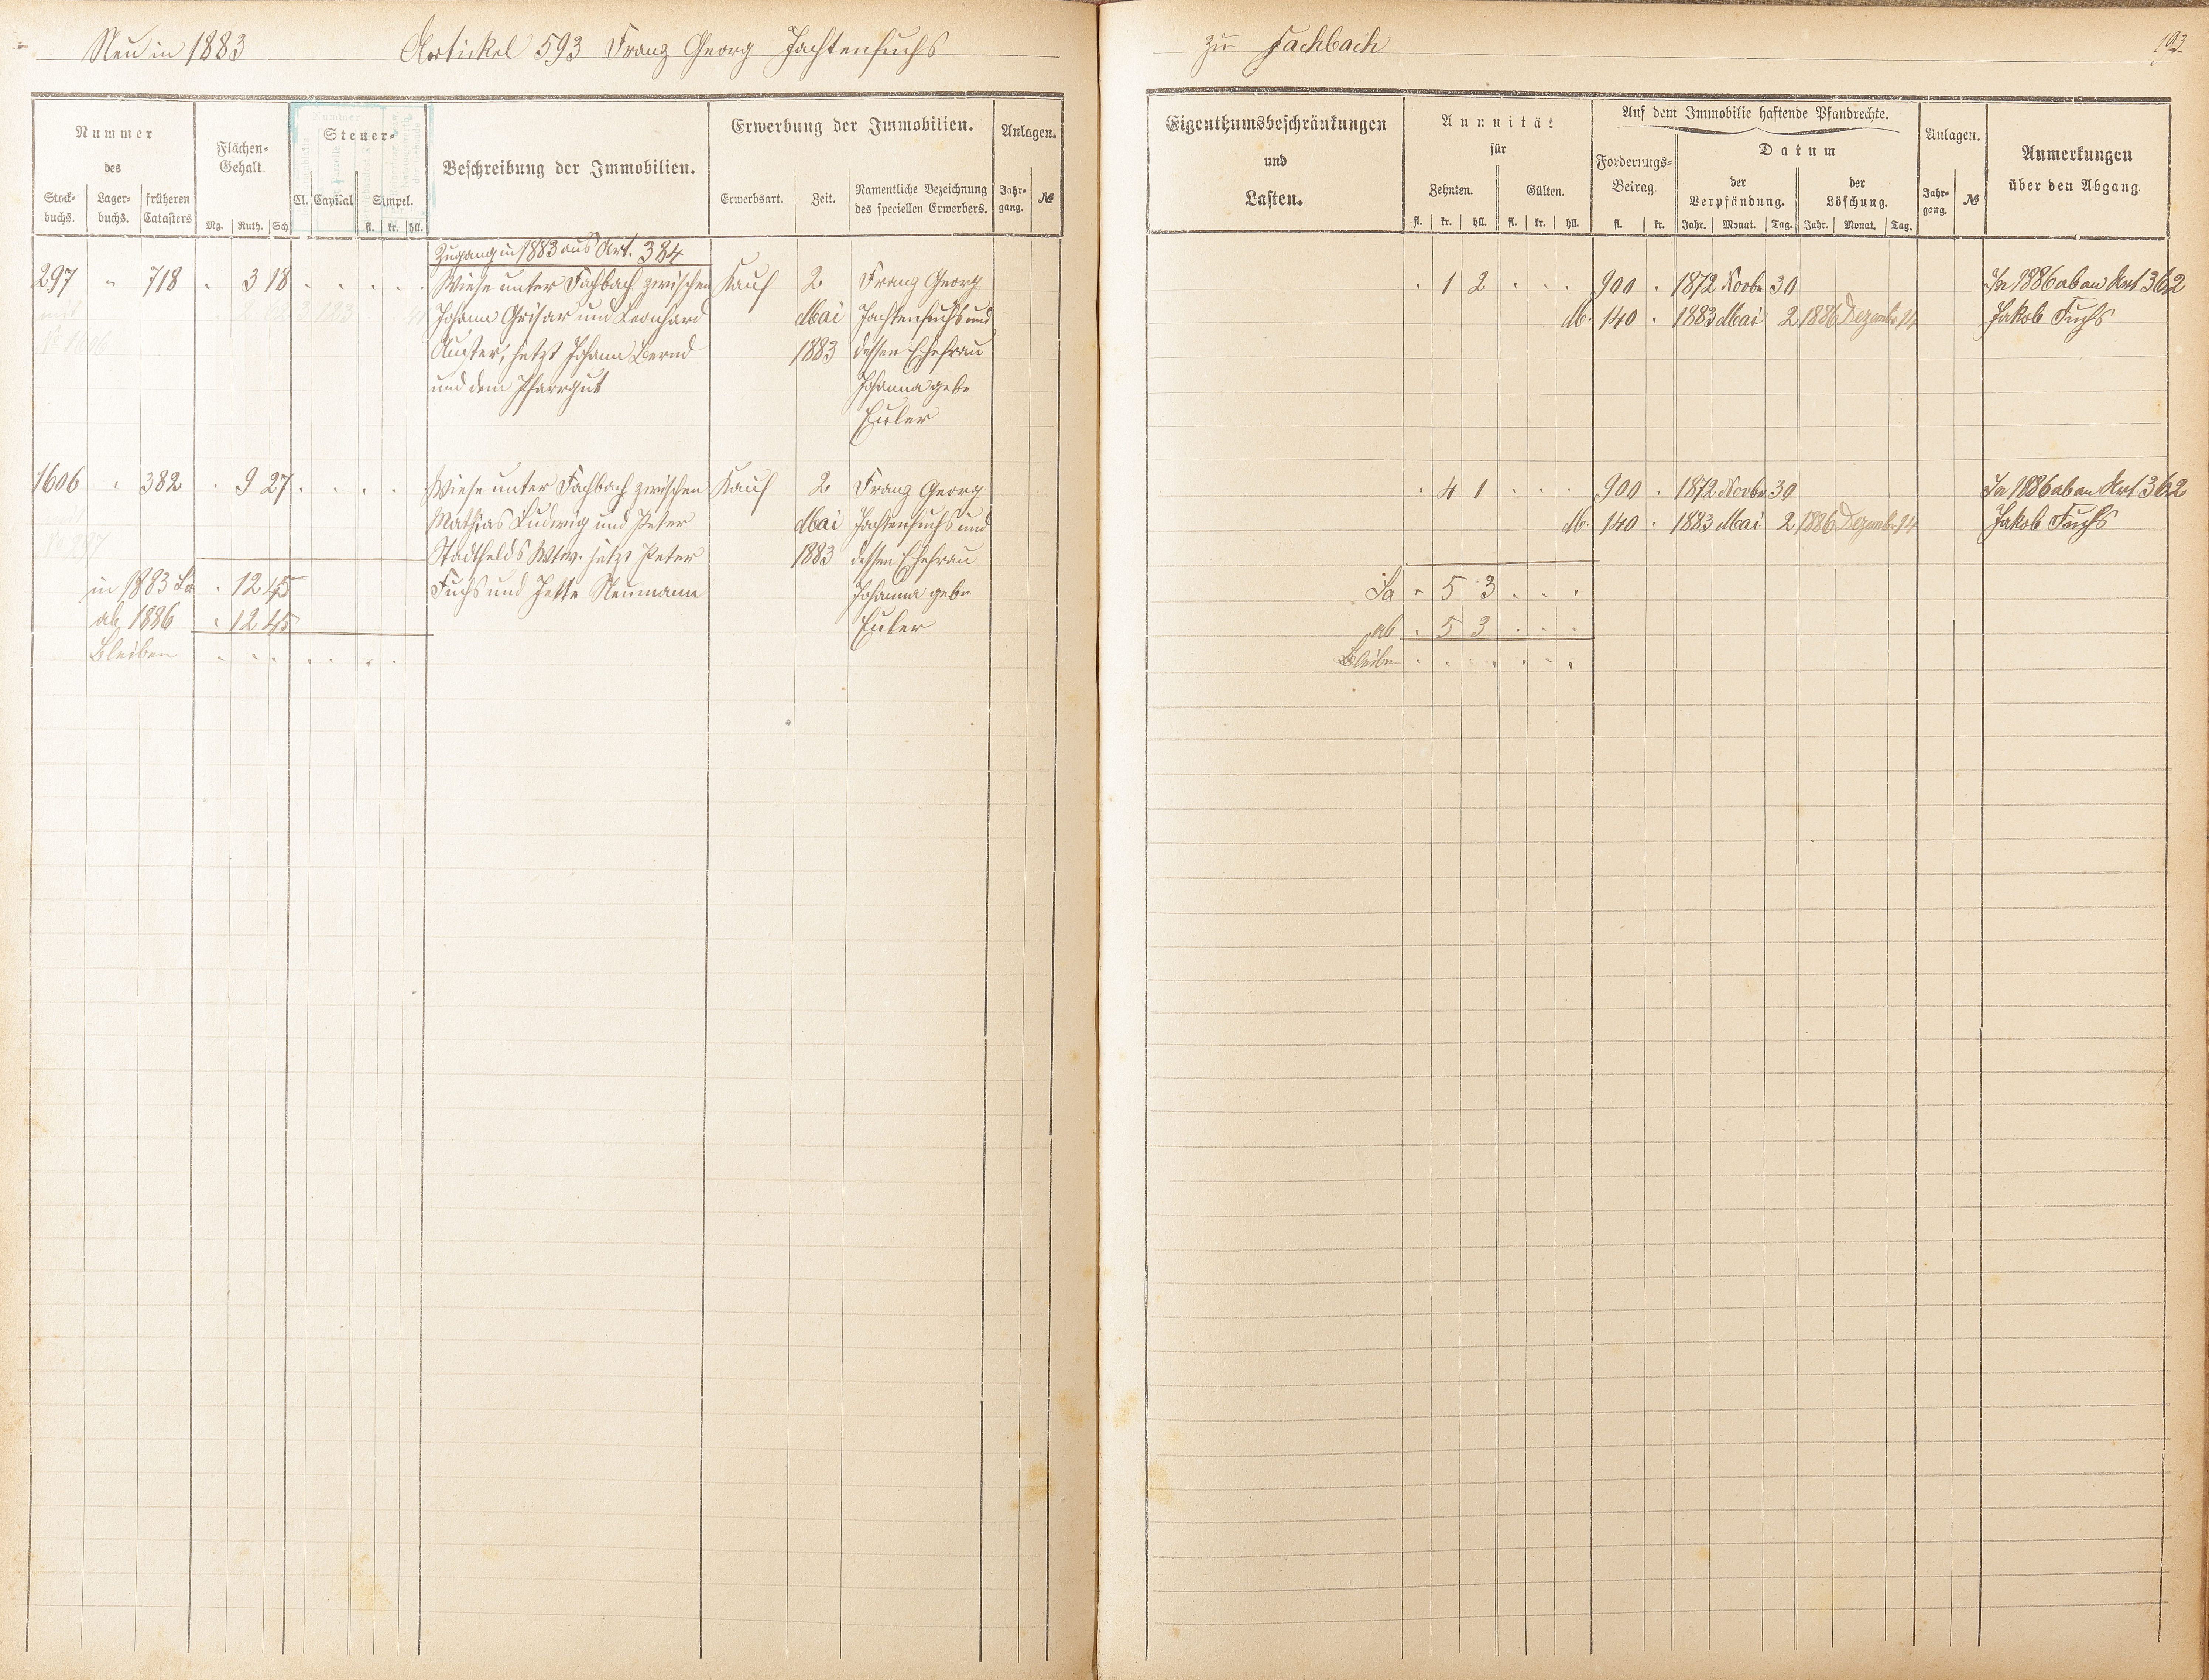 Neu in 1883 Artickel 593 Franz Georg Jachtenfuchs
zu Fachbach 193.
Nummer
des
Stock-
buchs.
Lager-
buchs.
früheren
Catasters
Flächen-
Gehalt.
Mg. Ruth. Sch.
Steuer-
Cl. Capital Simpel.
fl. kr. hll.
Beschreibung der Immobilien.
Erwerbung der Immobilien.
Erwerbsart. Zeit.
Namentliche Bezeichnung
des speciellen Erwerbers.
Anlagen.
Jahr-
gang.
№
Eigenthumsbeschränkungen
und
Lasten.
Annuität
für
Zehnten. Gülten.
fl. kr. hll. fl. kr. hll.
Auf dem Immobilie haftende Pfandrechte.
Forderungs-
Betrag.
fl. kr.
Datum
der
Verpfändung.
Jahr. Monat. Tag.
der
Löschung.
Jahr. Monat. Tag.
Anlagen.
Jahr-
gang.
№
Anmerkungen
über den Abgang.
Zugang in 1883 aus Art. 384
297 " 718 . 3 18 . . . . . Wiese unter Fachbach zwischen Kauf 2 Franz Georg . 1 2 . . . 900 . 1872 Novbr 30 In 1886 ab an Art 362
mit Johann Grisar und Leonhard Mai Jachtenfuchs und M. 140 . 1883 Mai 2 1886 Dezember 14 Jakob Fuchs
No 1606 jetzt Johann Bernd 1883 dessen Ehefrau
und dem Pfarrgut Johanna geb.
Euler
1606 " 382 . 9 27 . . . . Wiese unter Fachbach zwischen Kauf 2 Franz Georg . 4 1 . . . 900 . 1872 Novbr 30 In 1886 ab an Art 362
Mathias Ludwig und Peter Mai Jachtenfuchs und M. 140 . 1883 Mai 2 1886 Dezember 14 Jakob Fuchs
Stadtfelds Wtw. jetzt Peter 1883 dessen Ehefrau
in 1883 Sa . 12 45 Fuchs und Jette Neumann Johanna geb. Sa . 5 3 . . .
ab 1886 . 12 45 Euler ab . 5 3 . . .
Bleiben . . . . . . . Bleiben . . . . . .